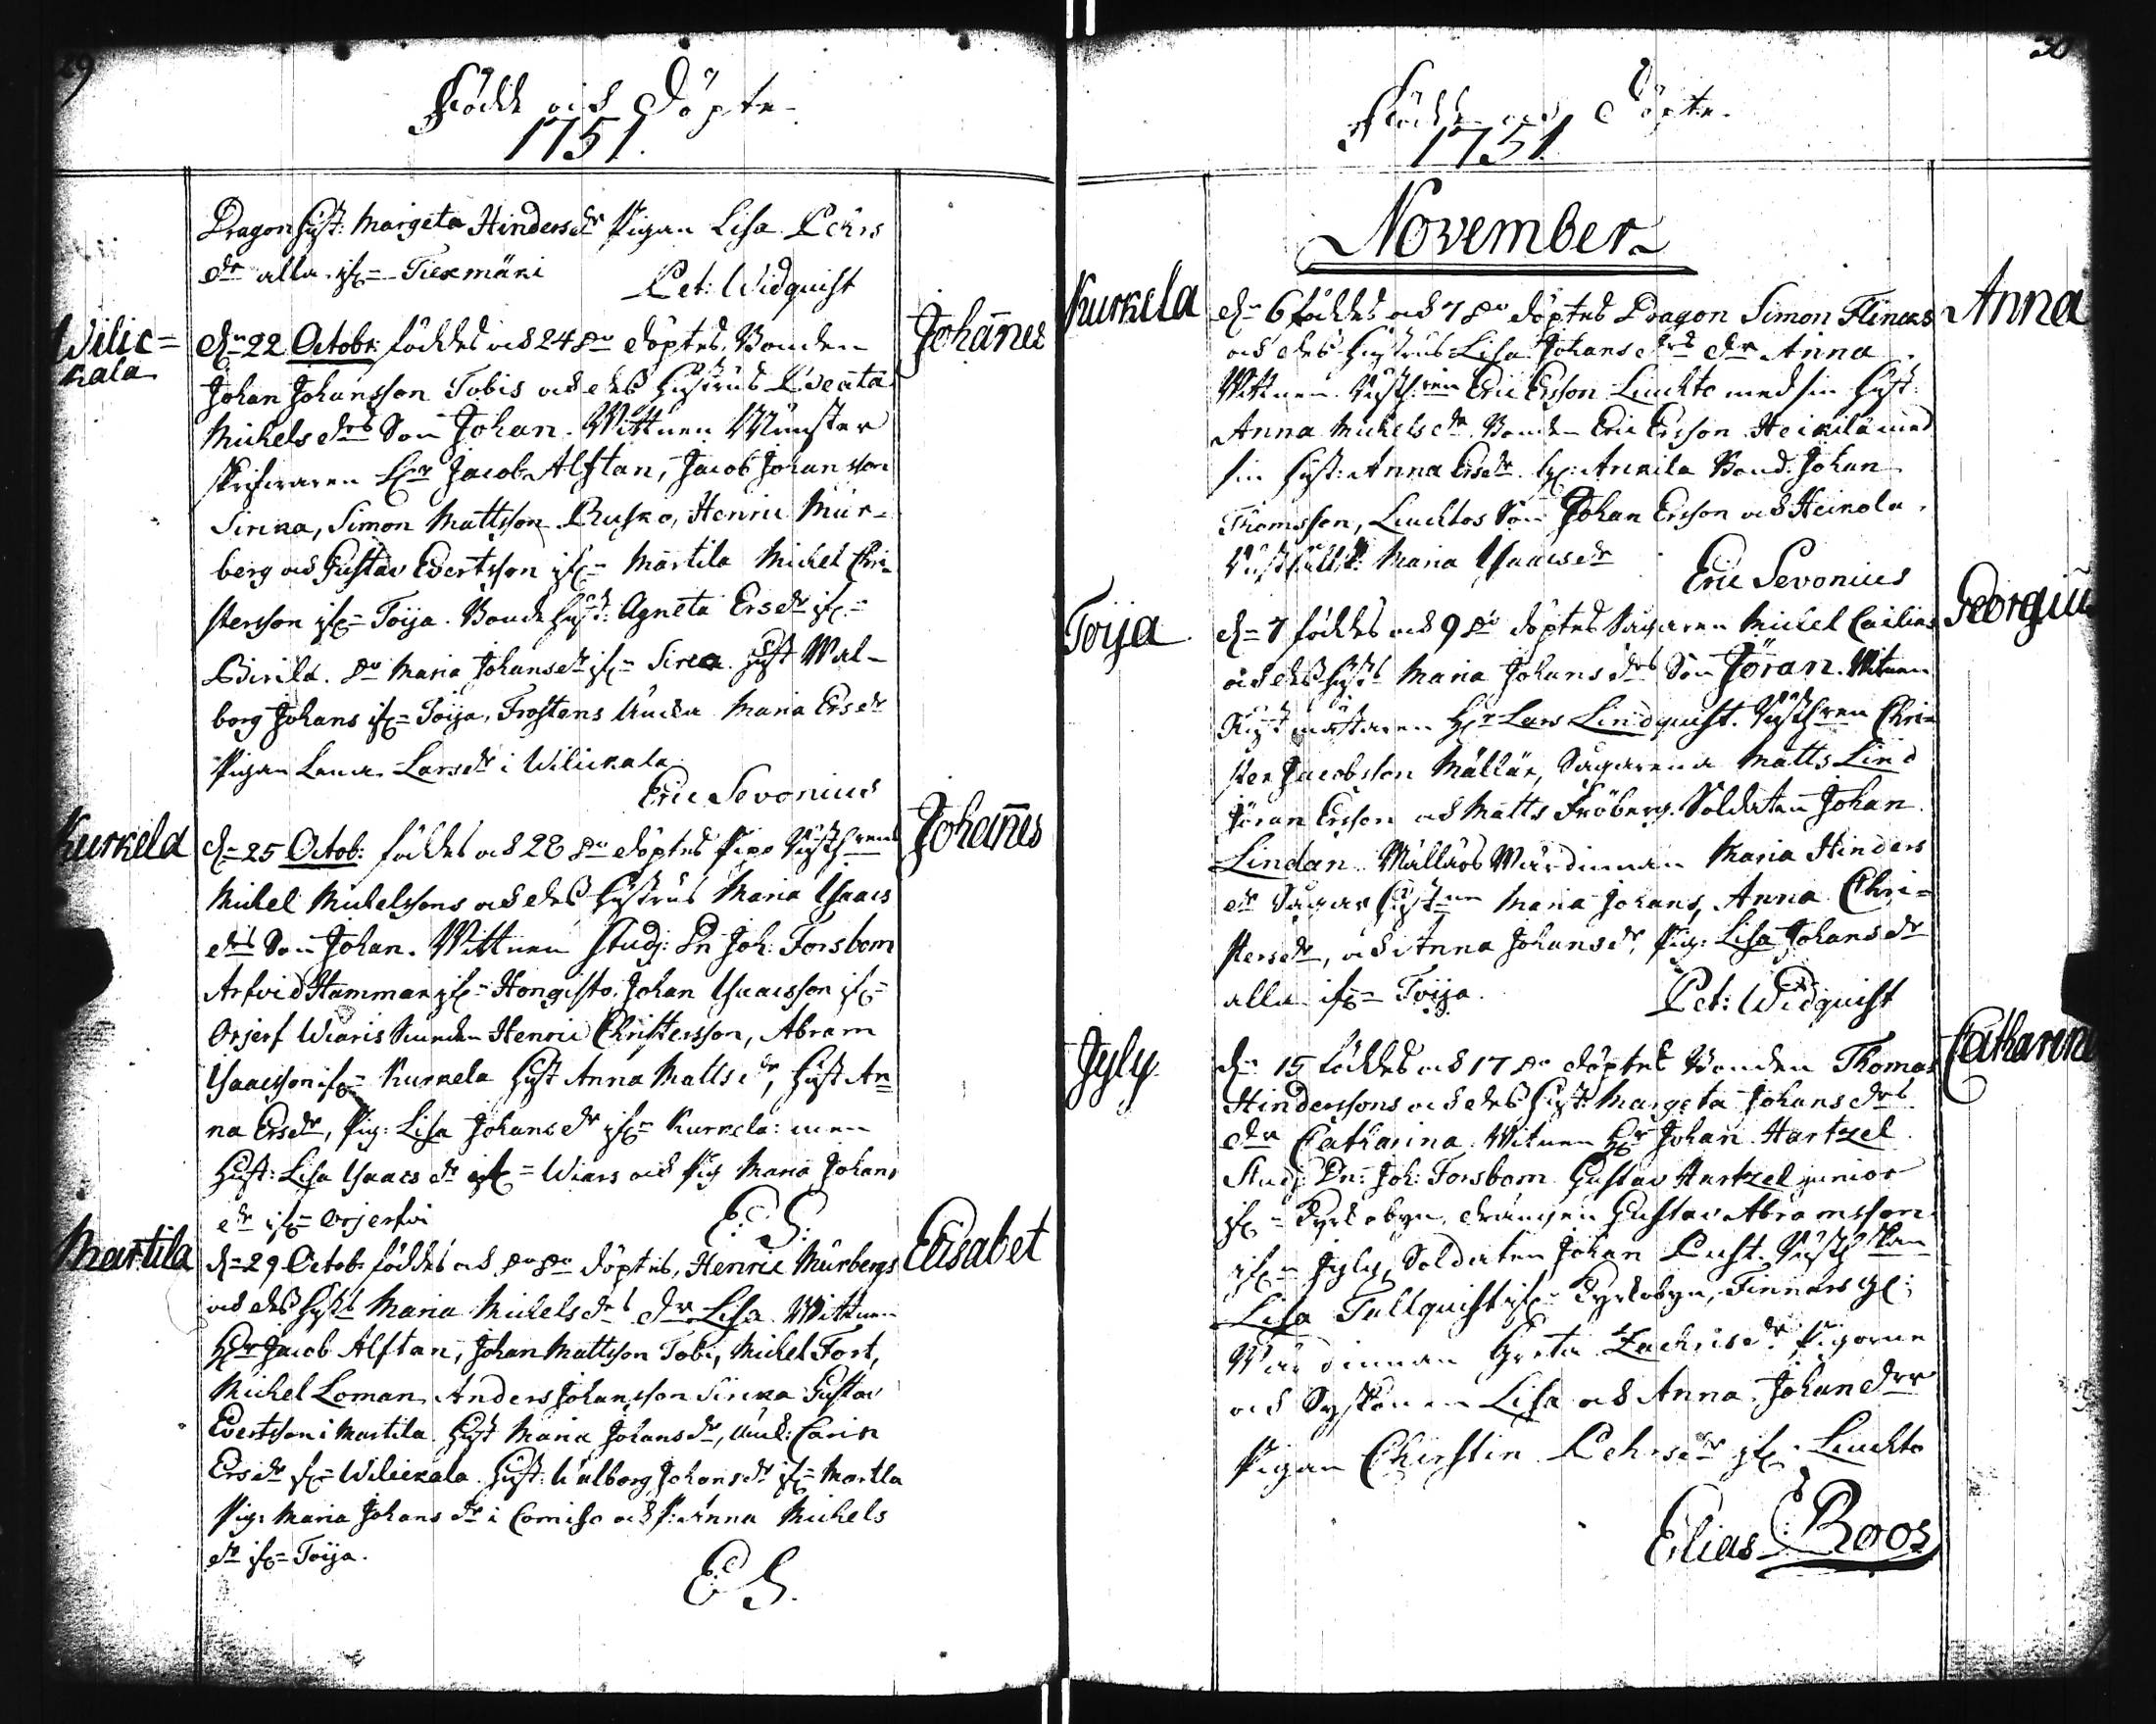 29
Födde och Döpte
1751.
Dragon Hust: Margeta Hindersdr Pigan Lisa Pehrs
dr alla if= Tiexmäki
Pet: Widquist
Wilic=
kala
Johan̄es
dn 22 Octobr: föddes och 24 do döptes Bonden
Johan Johansson Tobis och des Hustrus Beata
Michelsdrs Son Johan. Wittnen Mönster
skrifwaren Hr Jacob Alftan, Jacob Johansson
Sirkka, Simon Mattsson Rusko, Henric Mur-
berg och Gustav Evertsson if= Martila Michel Chri-
stersson if= Toija. Bonde Hust: Agneta Ersdr if=
do Maria Johansdr if= Sirca. Hust Wal-
borg Johans if= Toija, Maria Ersdr
Pigan Lena Larsdr i Wiliekala
Eric Sevonius
Kurkela
Johan̄es
dn 25 Octob: föddes och 28 do döptes
Michel Michelssons och des Hustrus Maria Isaacs
drs Son Johan. Wittnen Studj: Dn Joh: Forsbom
Arfvid Hamman if= Hongisto. Johan Isaacsson if=
Orjerf Wiaris Henric Christersson, Abram
Isaacsson if= Kurkela Hust Anna Mattsdr, Hust An=
na Ersdr, Pig: Lisa Johansdr if= Kurkela: men
Hust: Lisa Isaacsdr if= Wiars och Pig Maria Johans
dr if= Orjerfvi
E: S:
Martila
Elisabet
dn 29 Octob: föddes och do do döptes, Henric Murbergs
och des Husts Maria Michelsdrs dr Lisa Wittnen
Hr Jacob Alftan, Johan Mattsson Tobi, Michel Fort,
Michel Loman, Anders Johansson Sirkka Gustav
Evertsson i Martila. Hust Maria Johansdr, Carin
Ersdr if= Wiliekala. Hust: Walborg Johansdr if= Martla
Pig: Maria Johansdr i Comiso och P: Anna Michels
dr if= Toija.
E S.
30
Födde och Döpte
1751
November
Kurkela
Anna
dn 6 föddes och 7 do döptes Dragon Simon Flincks
och des Hustrus Lisa Johansdrs dr Anna
Wittnen Eric Ersson Liuchto med sin Hust:
Anna Michelsdr Bonden Eric Ersson Heickilä med
sin Hust: Anna Ersdr if: Ankila Bond. Johan
Thomsson, Liuchtos Son Johan Ersson och Heikola
Maria Isaacsdr
Eric Sevonius
Toija
Georgiu
dn 7 föddes och 9 do döptes Michel
och des Husts Maria Johansdrs Son Jöran. Witnen
Hr Lars Lindquist. Chri=
ster Jacobsson Mällär, Matts Lind
Jöran Ersson och Matts Fröberg. Soldaten Johan
Lindan. Mällärs Wärdinnan Maria Hinders
dr Maria Johans, Anna Chri=
stersdr, och Anna Johansdr, Pig: Lisa Johansdr
alla if= Toija.
Pet: Widquist
Jyly
Catharina
dn 15 föddes och 17 do döptes Bonden Thomas
Hinderssons och des Hust: Margeta Johansdrs
dr Catharina. Witnen Hr Johan Hartzel
Studj: Dn: Joh: Forsbom Gustav Hartzel junior
if= Kyrkobyn, drängen Gustav Abramsson
if= Jyly, Soldaten Johan
Lisa Tallquist if= Kyrkobyn, Finnars
Wärdinnan Greta Zachrisdr. Pigorne
och Syskonen Lisa och Anna Johansdrr
Pigan Chirstin Pehrsdr if. Liuchto
Elias Roos